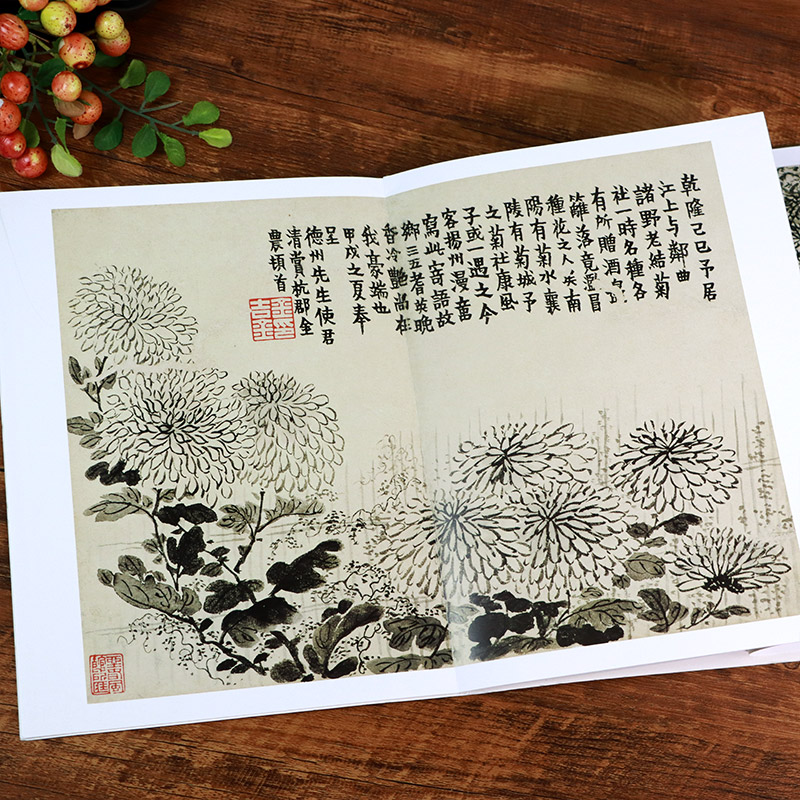 乾隆己巳予居
江上与鄰曲
諸野老結菊
社一時名種各
有所贈酒
籬落竟冒
種花之人南
陽有菊水襄
陵有菊城予
之菊社康風
子或一遇之今
客揚州漫畫
寫此寄語故
鄉三五耆英晚
香冷艷尚在
我豪端也
甲戌之夏奉
呈
德州先生使君
清賞杭郡金
農頓首
金吉金印